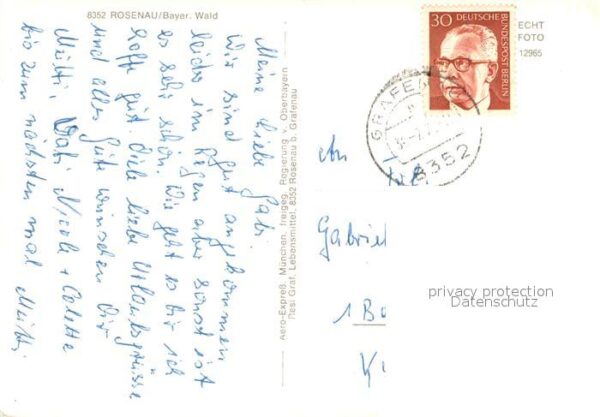 8352 ROSENAU/Bayer. Wald
Meine liebe Gabi.
Wir sind gut angekommen
leider im Regen aber sonst ist
es sehr schön. Wie geht es dir ich
hoffe gut. Viele liebe Urlaubsgrüsse
und alles Gute wünschen Dir
Mutti, Vati, Nicole + Colette
bis zum nächsten mal Mutti
Aero-Expreß, München, freigeg. Regierung v. Oberbayern
Resi Graf, Lebensmittel, 8352 Rosenau b. Grafenau
30 DEUTSCHE BUNDESPOST BERLIN
ECHT
FOTO
12965
GRAFENAU
8352
An
Gabriel
1 B
K
privacy protection
Datenschutz